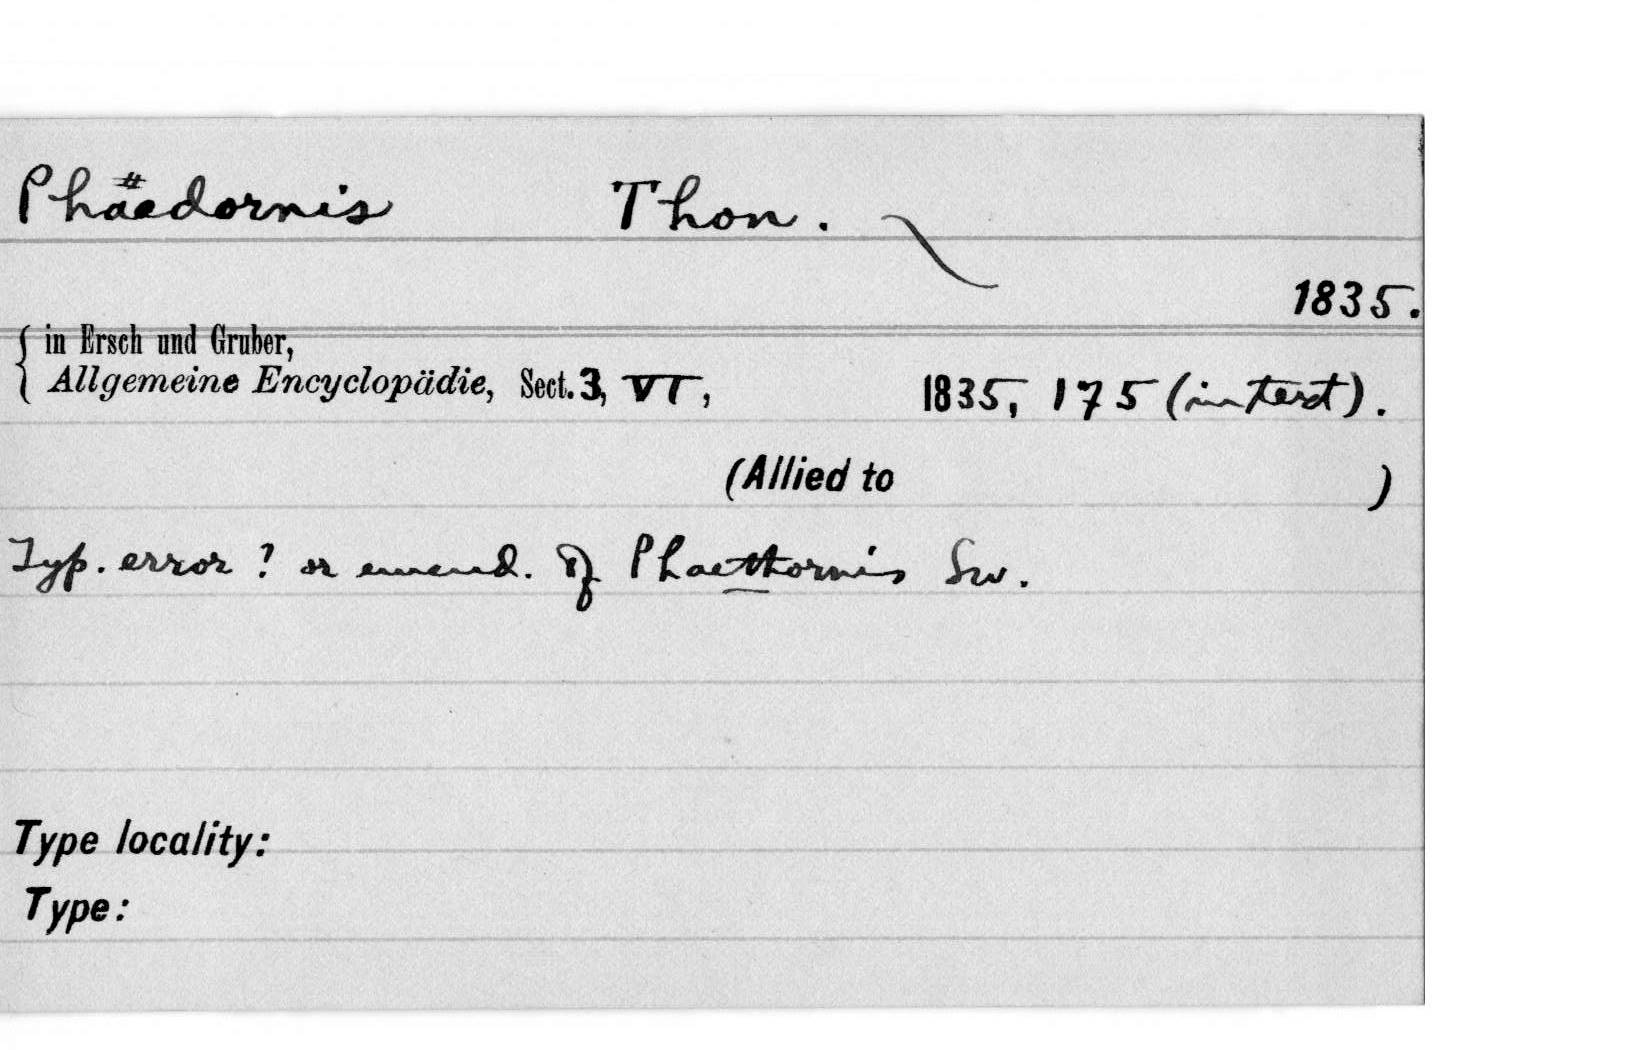 Phäedornis Thon.
1835.
in Ersch und Gruber,
Allgemeine Encyclopädie, Sect. 3, VI, 1835, 175 (in text).
(Allied to )
Typ. error ? or emend. of Phaethornis Sw.
Type locality:
Type: